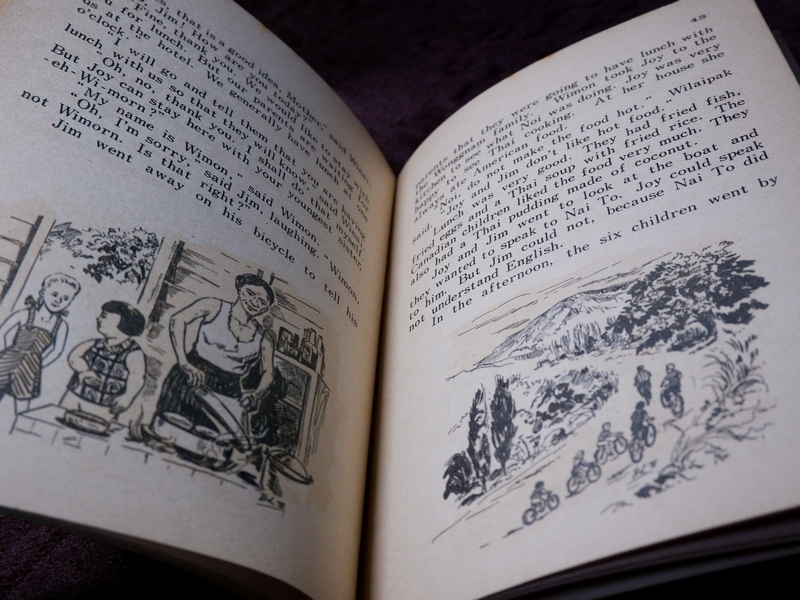 that is a good idea, Mother," said Wimon.
Jim! How would you like to stay with
for lunch,
"Fine, thank you. We generally have lunch
us at the hotel.
o'clock."
"I will go and tell them that you are having
lunch with us so that they will
"Oh, no, thank you. I shall do that myself.
But Joy can stay here with your youngest sister,
-eh-Wi-morn?"
"My name is Wimon," said Wimon.
"Oh, I'm sorry," said Jim, laughing. "Wimon,
not Wimorn. Is that right?"
Jim went away on his bicycle to tell his
43
parents that they were going to have lunch with
the Wongngam family. Wimon took Joy to the
kitchen to see what Noi was doing. Joy was very
happy to see Thai cooking. At her house she
always ate American food.
"Noi, do not make the food hot," Wilaipak
said. "Joy and Jim don't like hot food."
Lunch was very good. They had fried fish,
fried eggs and a Thai soup with fried rice. The
Canadian children liked the food very much. They
also had a Thai pudding made of coconut.
Joy and Jim went to look at the boat and
they wanted to speak to Nai To. Joy could speak
to him. But Jim could not, because Nai To did
not understand English.
In the afternoon, the six children went by